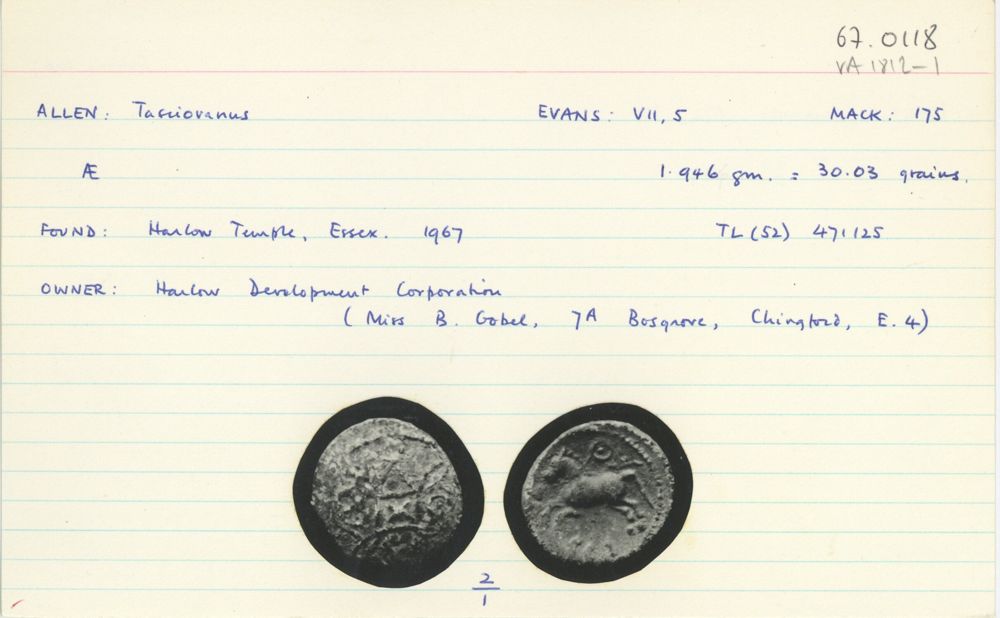 67.0118
VA 1812-1
ALLEN: Tasciovanus EVANS: VII, 5 MACK: 175
Æ 1.946 gm. = 30.03 grains.
FOUND: Harlow Temple, Essex. 1967 TL (52) 471125
OWNER: Harlow Development Corporation
(Miss B. Gobel, 7A Bosgrove, Chingford, E.4)
2
1